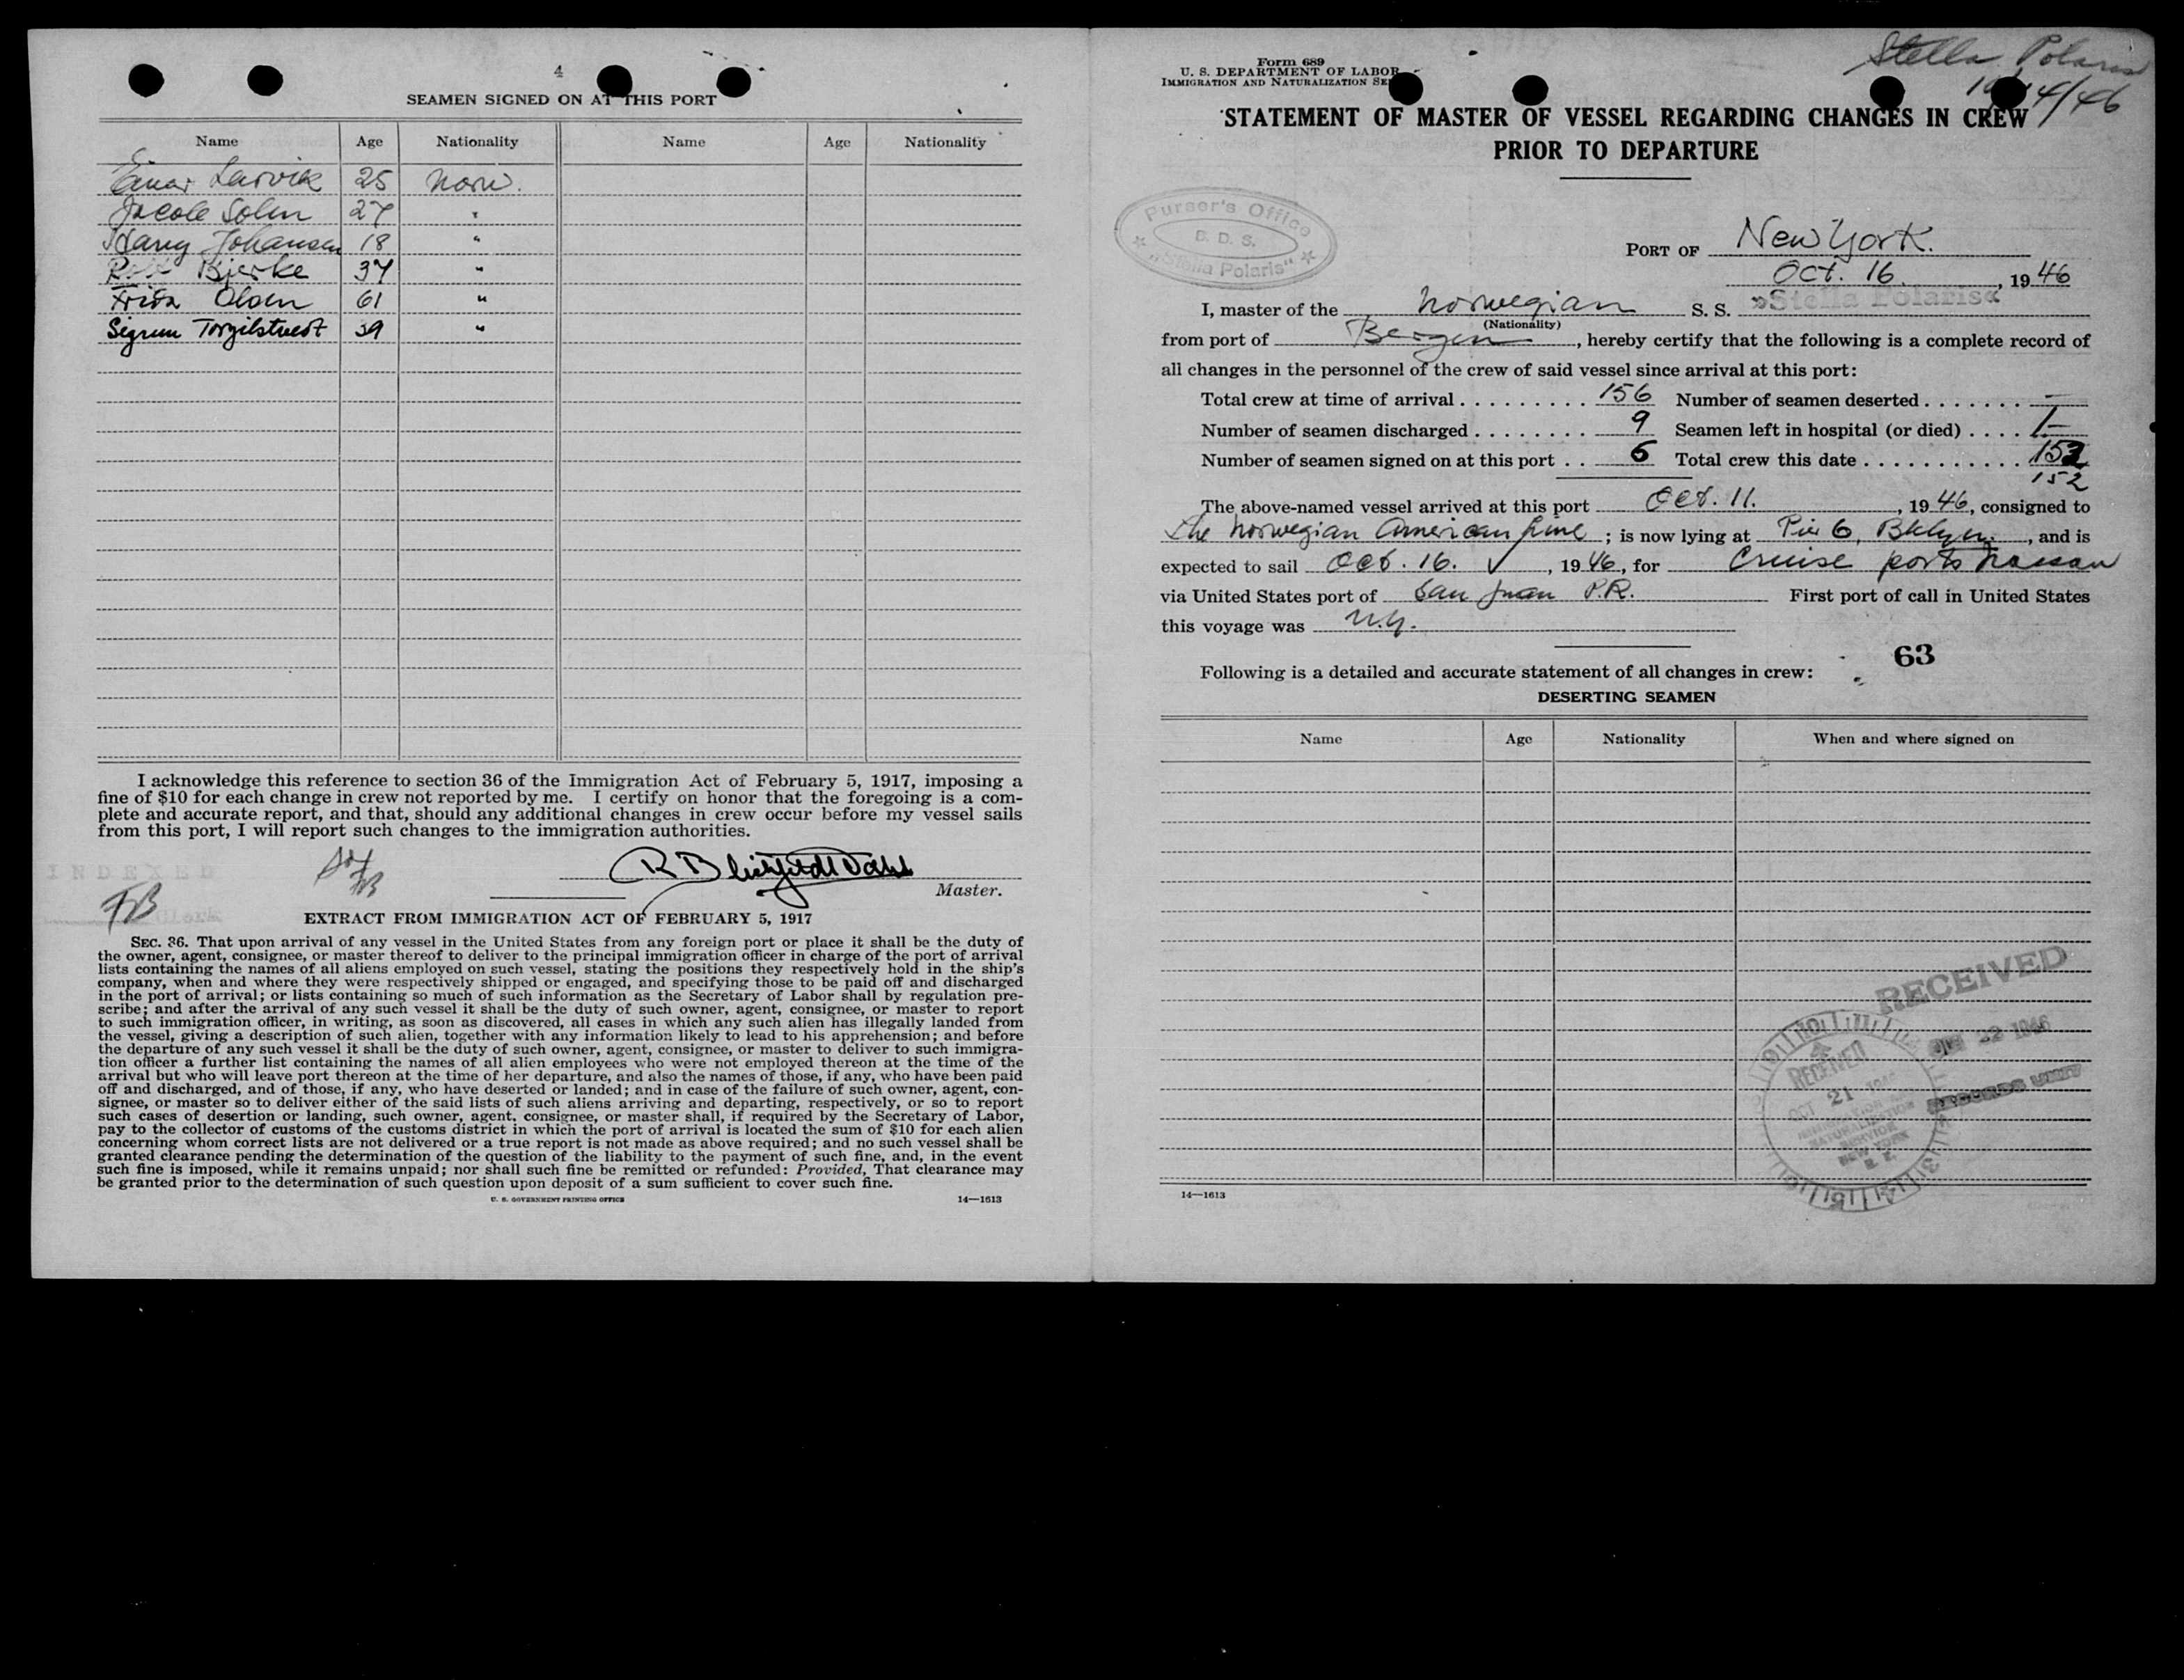 4
SEAMEN SIGNED ON AT THIS PORT
Name Age Nationality Name Age Nationality
Einar Larvik 25 Norw.
Jacob Solm 27 "
Harry Johansen 18 "
Bjerke 37 "
Frida Olsen 61 "
Sigrun 39 "
I acknowledge this reference to section 36 of the Immigration Act of February 5, 1917, imposing a
fine of $10 for each change in crew not reported by me. I certify on honor that the foregoing is a com-
plete and accurate report, and that, should any additional changes in crew occur before my vessel sails
from this port, I will report such changes to the immigration authorities.
INDEXED
FB
Clerk
Master.
EXTRACT FROM IMMIGRATION ACT OF FEBRUARY 5, 1917
SEC. 36. That upon arrival of any vessel in the United States from any foreign port or place it shall be the duty of
the owner, agent, consignee, or master thereof to deliver to the principal immigration officer in charge of the port of arrival
lists containing the names of all aliens employed on such vessel, stating the positions they respectively hold in the ship's
company, when and where they were respectively shipped or engaged, and specifying those to be paid off and discharged
in the port of arrival; or lists containing so much of such information as the Secretary of Labor shall by regulation pre-
scribe; and after the arrival of any such vessel it shall be the duty of such owner, agent, consignee, or master to report
to such immigration officer, in writing, as soon as discovered, all cases in which any such alien has illegally landed from
the vessel, giving a description of such alien, together with any information likely to lead to his apprehension; and before
the departure of any such vessel it shall be the duty of such owner, agent, consignee, or master to deliver to such immigra-
tion officer a further list containing the names of all alien employees who were not employed thereon at the time of the
arrival but who will leave port thereon at the time of her departure, and also the names of those, if any, who have been paid
off and discharged, and of those, if any, who have deserted or landed; and in case of the failure of such owner, agent, con-
signee, or master so to deliver either of the said lists of such aliens arriving and departing, respectively, or so to report
such cases of desertion or landing, such owner, agent, consignee, or master shall, if required by the Secretary of Labor,
pay to the collector of customs of the customs district in which the port of arrival is located the sum of $10 for each alien
concerning whom correct lists are not delivered or a true report is not made as above required; and no such vessel shall be
granted clearance pending the determination of the question of the liability to the payment of such fine, and, in the event
such fine is imposed, while it remains unpaid; nor shall such fine be remitted or refunded: Provided, That clearance may
be granted prior to the determination of such question upon deposit of a sum sufficient to cover such fine.
U. S. GOVERNMENT PRINTING OFFICE 14—1613
Form 689
U. S. DEPARTMENT OF LABOR
IMMIGRATION AND NATURALIZATION
Stella Polaris
4/46
STATEMENT OF MASTER OF VESSEL REGARDING CHANGES IN CREW
PRIOR TO DEPARTURE
Purser's Office
B. D. S.
"Stella Polaris"
PORT OF New York.
Oct. 16, 1946
I, master of the Norwegian S. S. »Stella Polaris«
(Nationality)
from port of Bergen, hereby certify that the following is a complete record of
all changes in the personnel of the crew of said vessel since arrival at this port:
Total crew at time of arrival 156 Number of seamen deserted —
Number of seamen discharged 9 Seamen left in hospital (or died) 1-
Number of seamen signed on at this port 6 Total crew this date 152
152
The above-named vessel arrived at this port Oct. 11., 1946, consigned to
the Norwegian American Line; is now lying at Pier 6, Bklyn., and is
expected to sail Oct. 16. ✓, 1946, for Cruise ports Nassau
via United States port of San Juan P.R. First port of call in United States
this voyage was N.Y.
63
Following is a detailed and accurate statement of all changes in crew:
DESERTING SEAMEN
Name Age Nationality When and where signed on
RECEIVED
22 1946
RECORDS UNIT
RECEIVED
OCT 21 1946
IMMIGRATION AND
NATURALIZATION
SERVICE
NEW YORK
N. Y.
14—1613